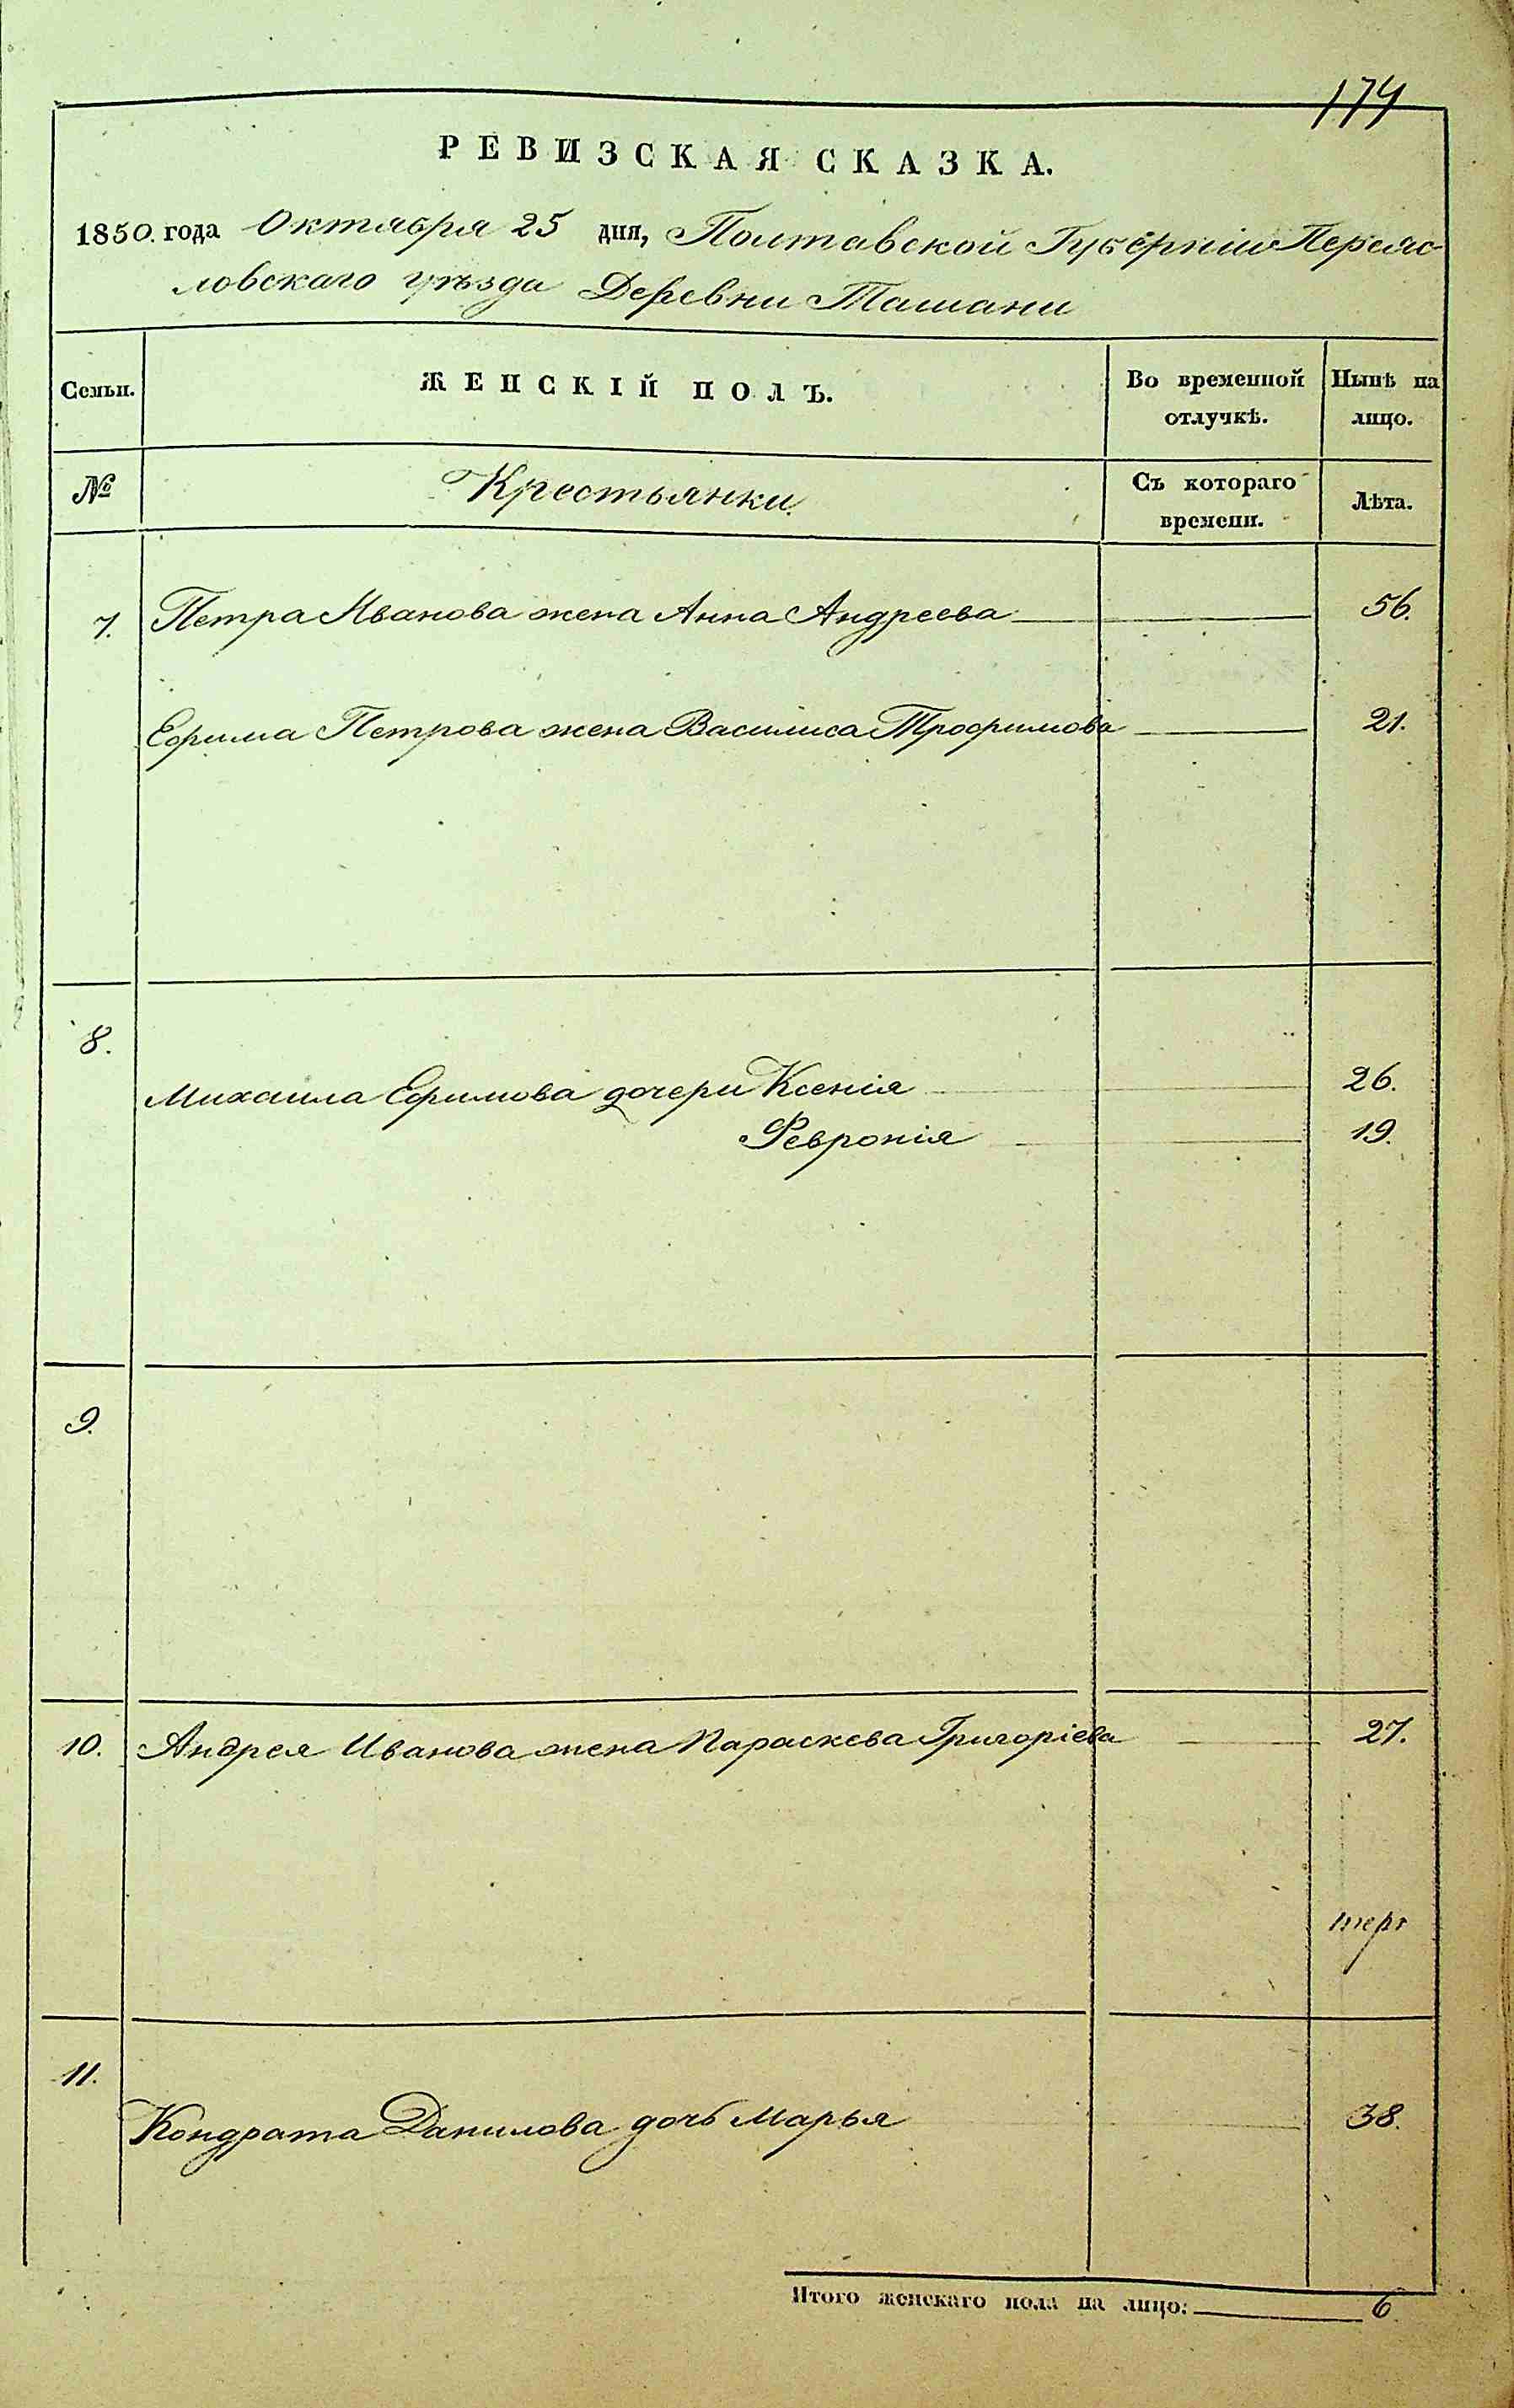 174
РЕВИЗСКАЯ СКАЗКА.
1850. года Октября 25 дня, Полтавской Губерніи Переяс-
ловскаго уѣзда Деревни Ташани
Семьи. ЖЕНСКІЙ ПОЛЪ. Во временной отлучкѣ. Нынѣ на лицо.
№ Крестьянки. Съ котораго времени. Лѣта.
7. Петра Иванова жена Анна Андреева 56.
Ефима Петрова жена Василиса Трофимова 21.
8.
Михаила Ефимова дочери Ксенія 26.
Февронія 19.
9.
10. Андрея Иванова жена Параскева Григоріева 27.
11.
Кондрата Данилова дочь Марья 38.
Итого женскаго пола на лицо: 6